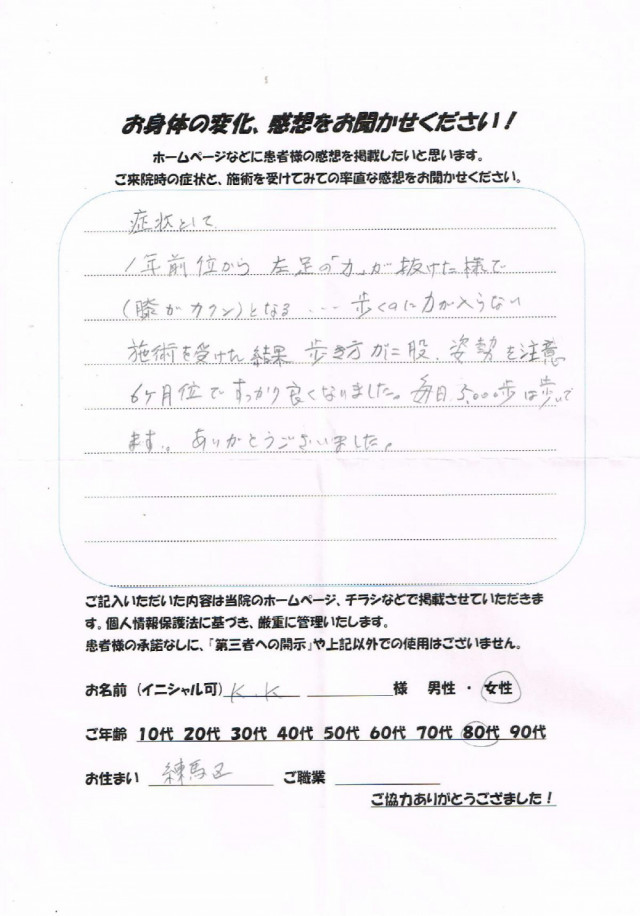 お身体の変化、感想をお聞かせください！
ホームページなどに患者様の感想を掲載したいと思います。
ご来院時の症状と、施術を受けてみての率直な感想をお聞かせください。
症状として
1年前位から 左足の「力」が抜けた様で
(膝がカクン)となる ・・・ 歩くのに力が入らない
施術を受けた結果 歩き方がニ股、姿勢を注意
6ヶ月位ですっかり良くなりました。毎日、5,000歩は歩いて
ます。ありがとうございました。
ご記入いただいた内容は当院のホームページ、チラシなどで掲載させていただきま
す。個人情報保護法に基づき、厳重に管理いたします。
患者様の承諾なしに、「第三者への開示」や上記以外での使用はございません。
お名前 （イニシャル可） K.K 様 男性 ・ 女性
ご年齢 10代 20代 30代 40代 50代 60代 70代 80代 90代
お住まい 練馬区 ご職業
ご協力ありがとうござました！